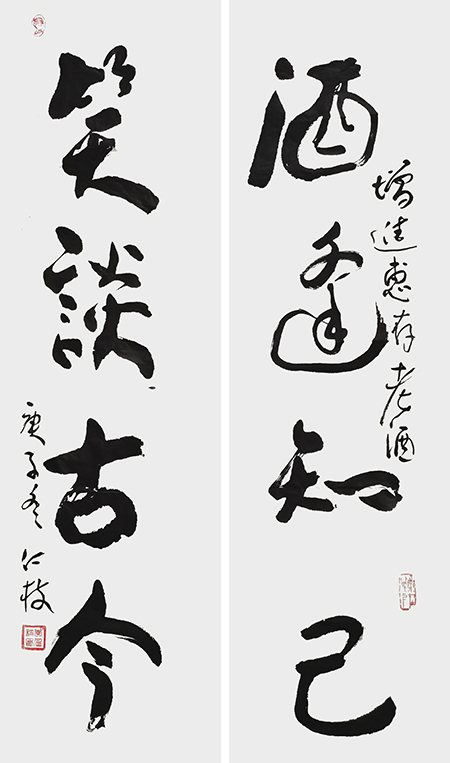 酒逢知己
增进惠存老酒
笑談古今
庚子冬 仁枝